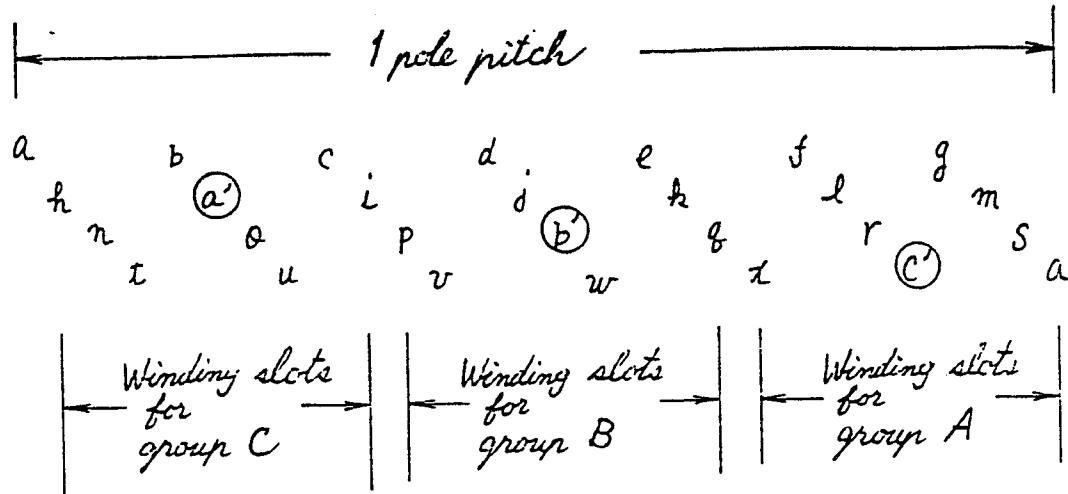 1 pole pitch
a b c d e f g
h a' i j k l m
n o p b' q r s
t u v w x c' a
Winding slots
for
group C
Winding slots
for
group B
Winding slots
for
group A